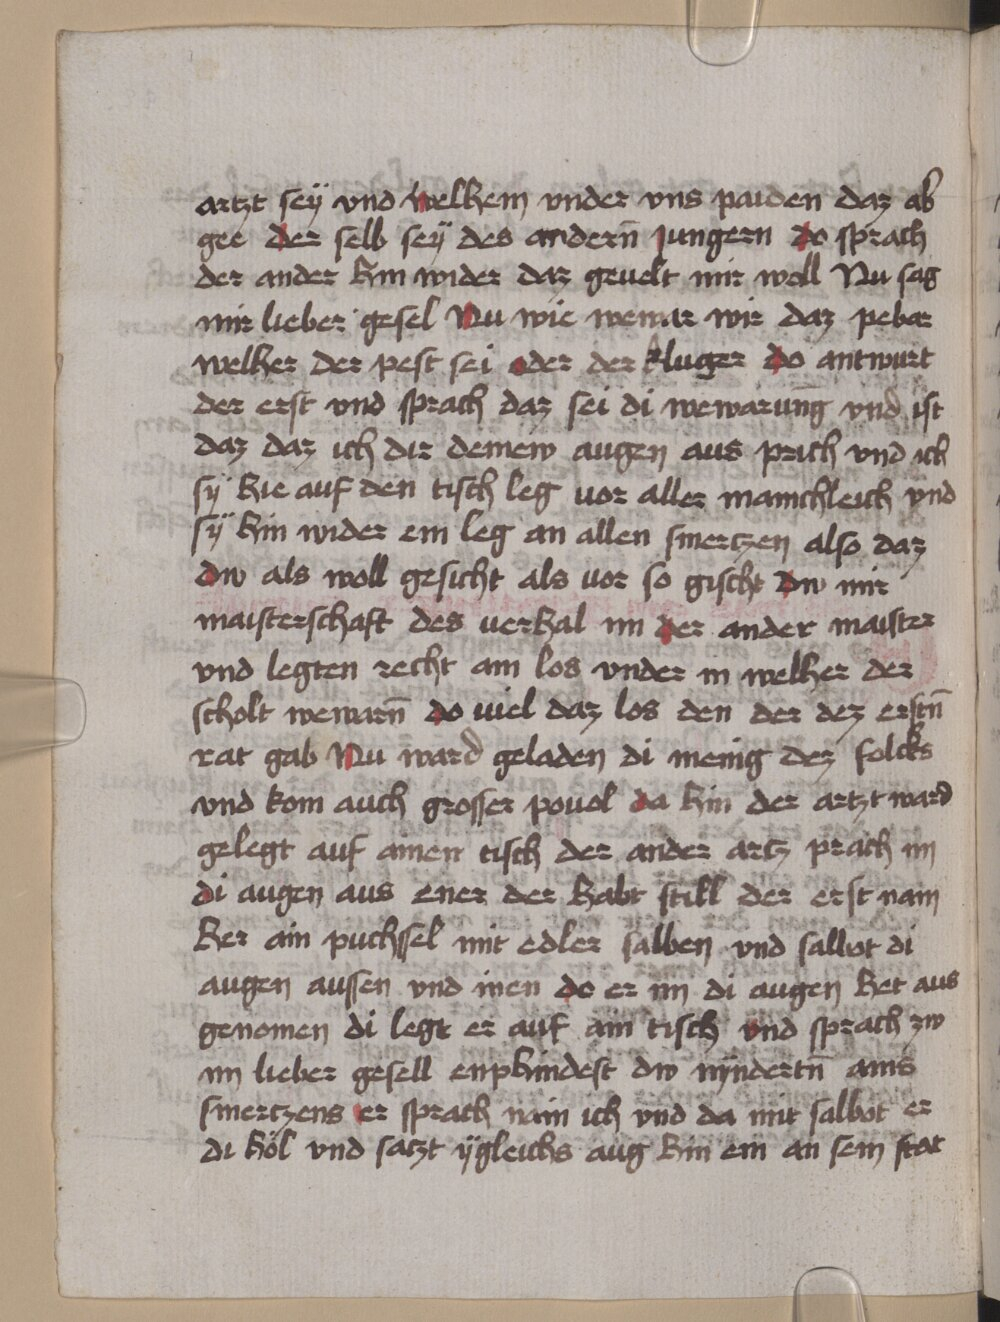 artzt seÿ vnd welhem vnder vns paiden daz ab
gee der selb seÿ des andern̄ jungern do sprach
der ander hin wider daz geuelt mir woll Nu sag
mir lieber gesel Nu wie wewar wir daz pebar
welher der pest sei oder der kluger do antwurt
der erst vnd sprach daz sei di wewarun̄g vnd ist
daz daz ich dir deinew augen aus prich vnd ich
sÿ hie auf den tisch leg vor aller mainchleich vnd
sÿ hin wider ein leg an allen smertzen also daz
dw als woll gesicht als vor so gischt dw mir
maisterschaft des verhal im der ander maister
vnd legten recht ain los vnder in welher der
scholt wewarn̄ do viel daz los den der dez erstn̄
rat gab Nu ward geladen di menig dez folcks
vnd kom auch grosser pouol da hin der artzt ward
gelegt auf ainen tisch der ander artz prach im
di augen aus ener der habt still der erst nam
her ain puchssel mit edler salben vnd salbot di
augen aussen vnd inen do er im di augen het aus
genomen di legt er auf ain tisch vnd sprach zw
im lieber gesell enphindest dw nÿndertn̄ ains
smertzens er sprach nain ich vnd da mit salbot er
di höl vnd satzt ÿgleichs aug hin ein an sein stat